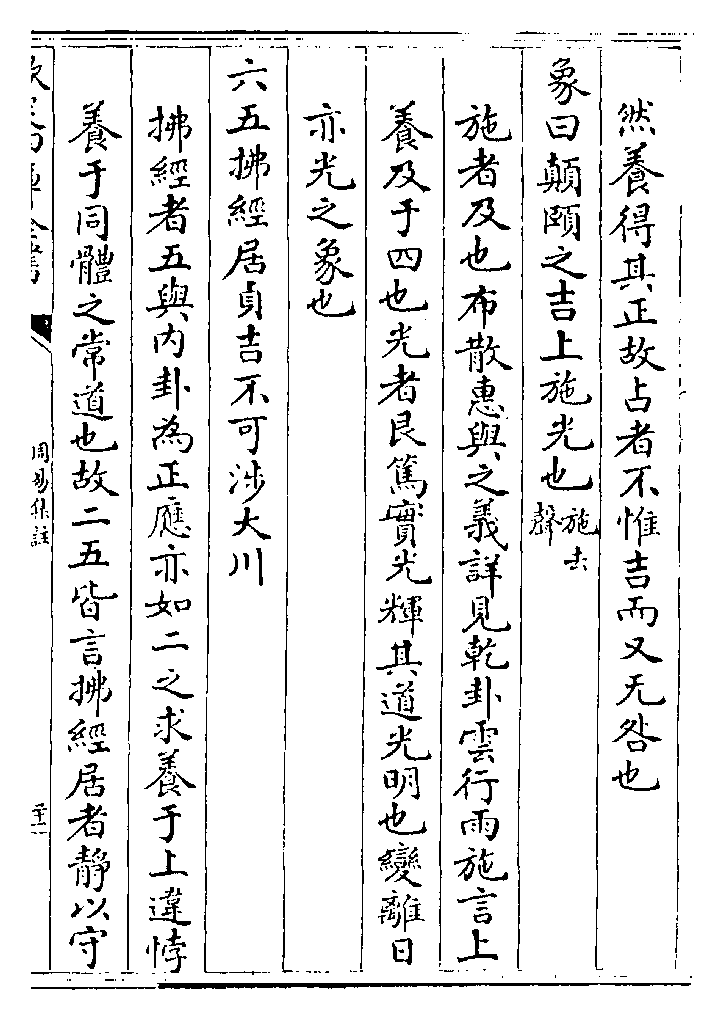 然養得其正故占者不惟吉而又无咎也
象曰顛頤之吉上施光也施去聲
施者及也布散惠與之義詳見乾卦雲行雨施言上
養及于四也光者艮篤實光輝其道光明也變離日
亦光之象也
六五拂經居貞吉不可涉大川
拂經者五與内卦為正應亦如二之求養于上違悖
養于同體之常道也故二五皆言拂經居者静以守
周易集註